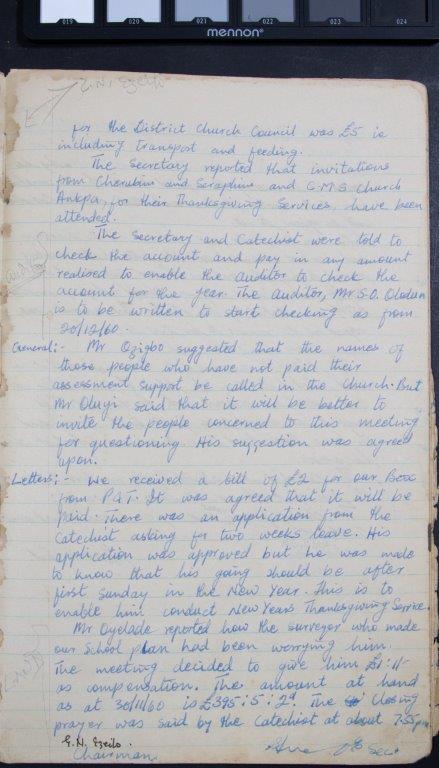 019 020 021 022 023 024
mennon®
for the District Church Council was £5 ie
including transport and feeding.
The Secretary reported that invitations
from Cherubim and Seraphim and C.M.S Church
Ankpa, for their Thanksgiving Services, have been
attended.
The Secretary and Catechist were told to
check the account and pay in any amount
realised to enable the auditor to check the
account for the year. The auditor, Mr S.O.
is to be written to start checking as from
20/12/60.
General:- Mr Ozigbo suggested that the names of
those people who have not paid their
assessment support be called in the church. But
Mr Oluyi said that it will be better to
invite the people concerned to this meeting
for questioning. His suggestion was agreed
upon.
Letters:- We received a bill of £2 for our Box
from P&T. It was agreed that it will be
paid. There was an application from the
Catechist asking for two weeks leave. His
application was approved but he was made
to know that his going should be after
first Sunday in the New Year. This is to
enable him conduct New Years Thanksgiving Service.
Mr Oyelade reported how the surveyor who made
our School plan had been worrying him.
The meeting decided to give him £1:1/-
as compensation. The amount at hand
as at 30/11/60 is £395:5:2d. The Closing
prayer was said by the Catechist at about 7.55pm.
E.N. Ezeilo.
Chairman
Sec.